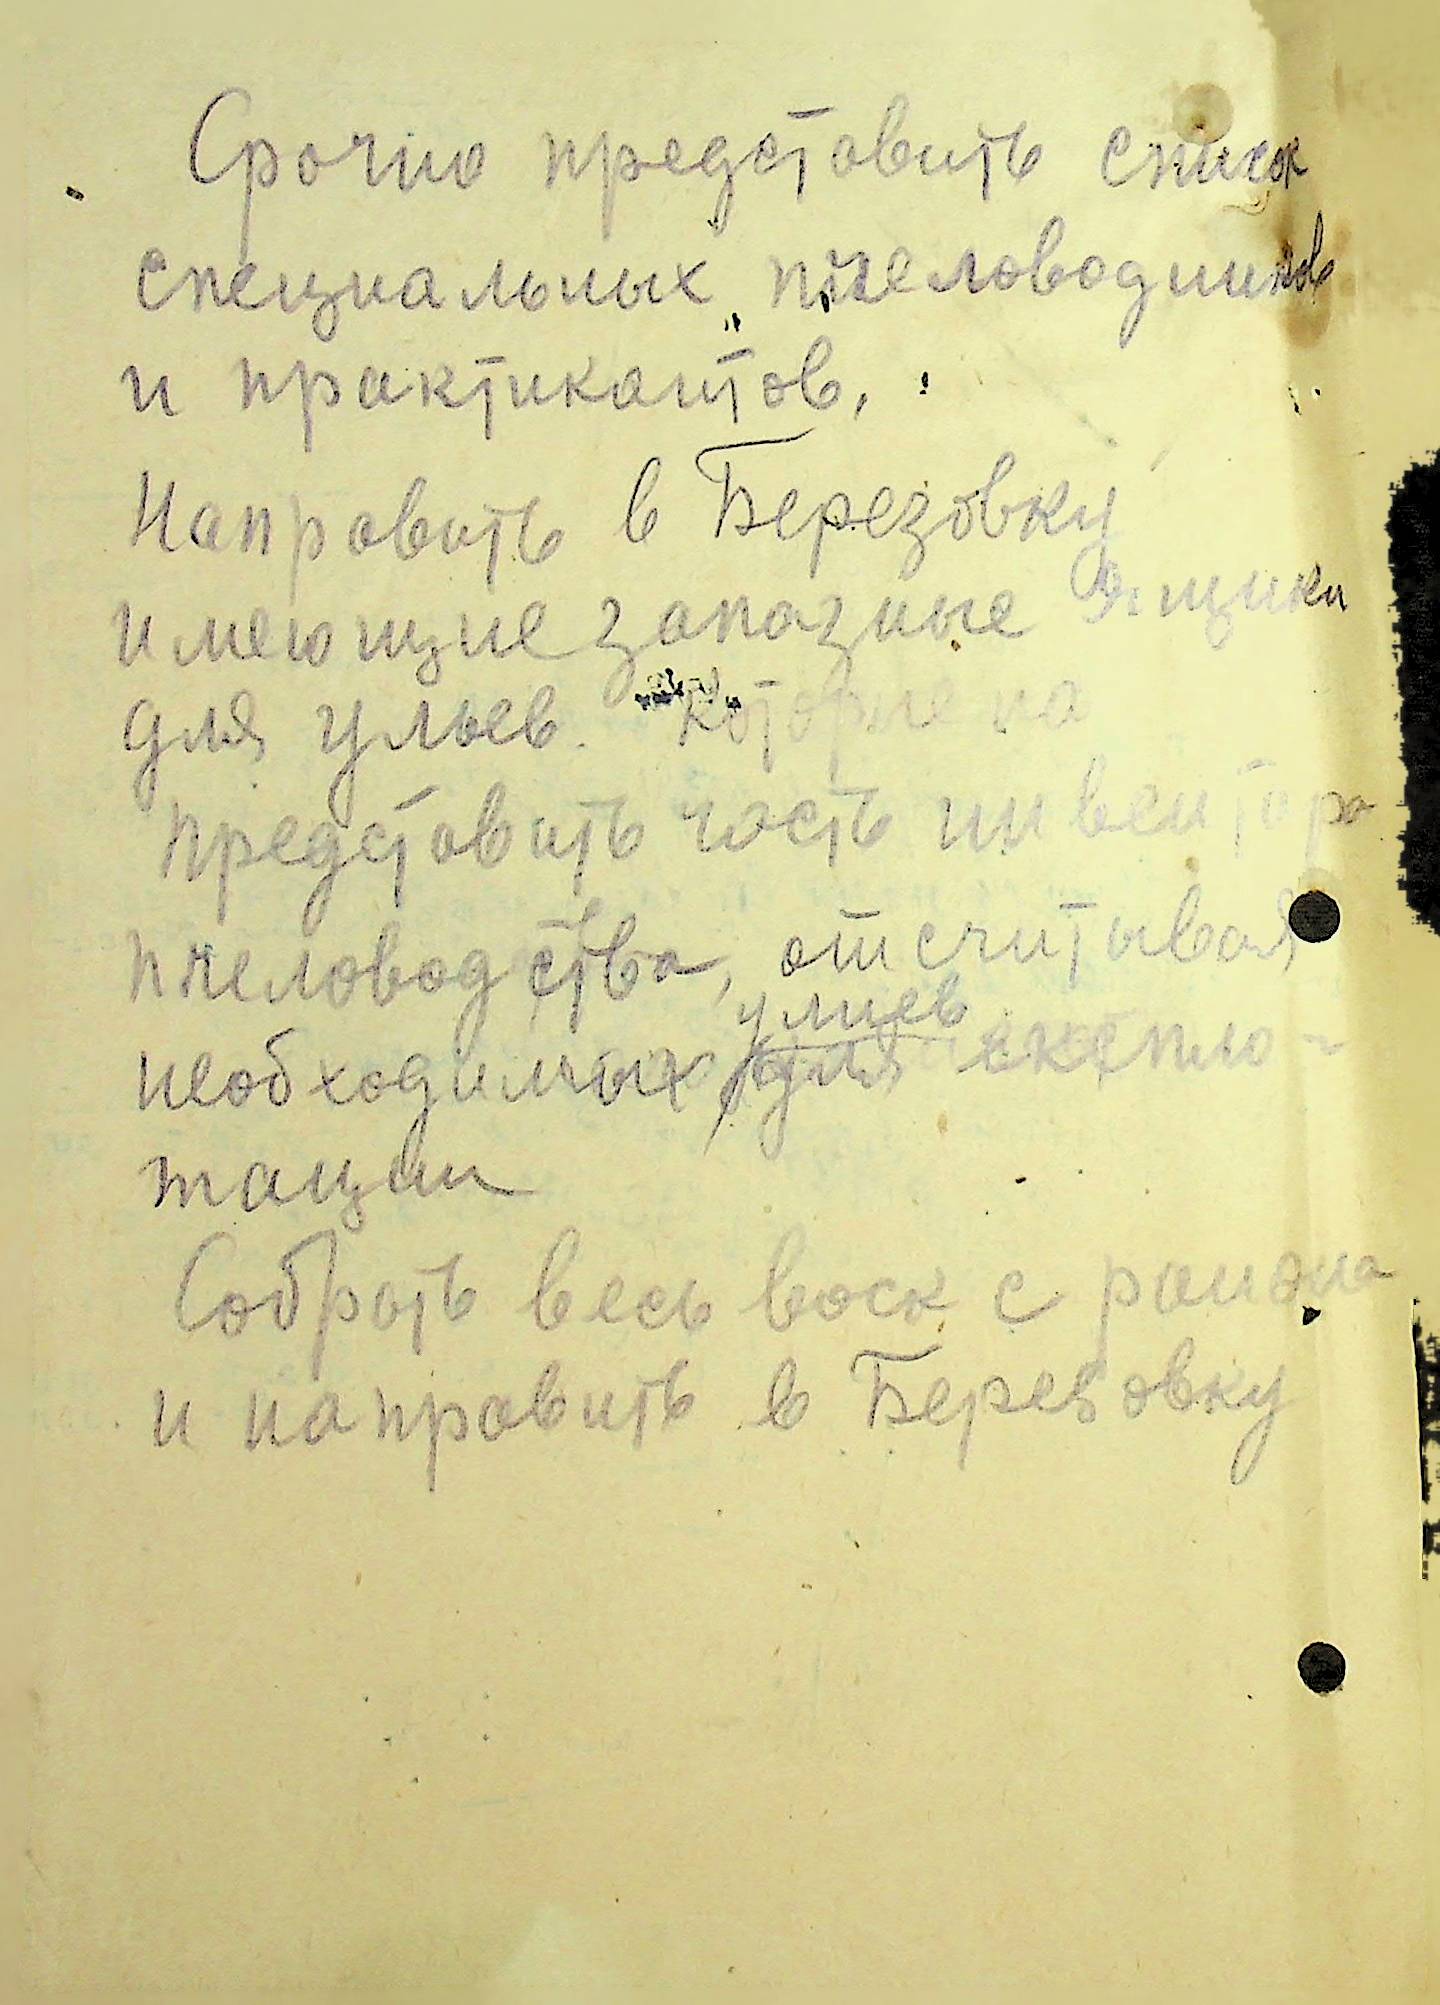 Срочно представить список
специальных пчеловодников
и практикантов,
Направить в Березовку
имеющие запазные ящики
для ульев. которые на
Представить часть инвентора
пчеловодства, отсчитывая
ульев
необходимых для експло-
тации
Собрать весь воск с раиона
и направить в Березовку